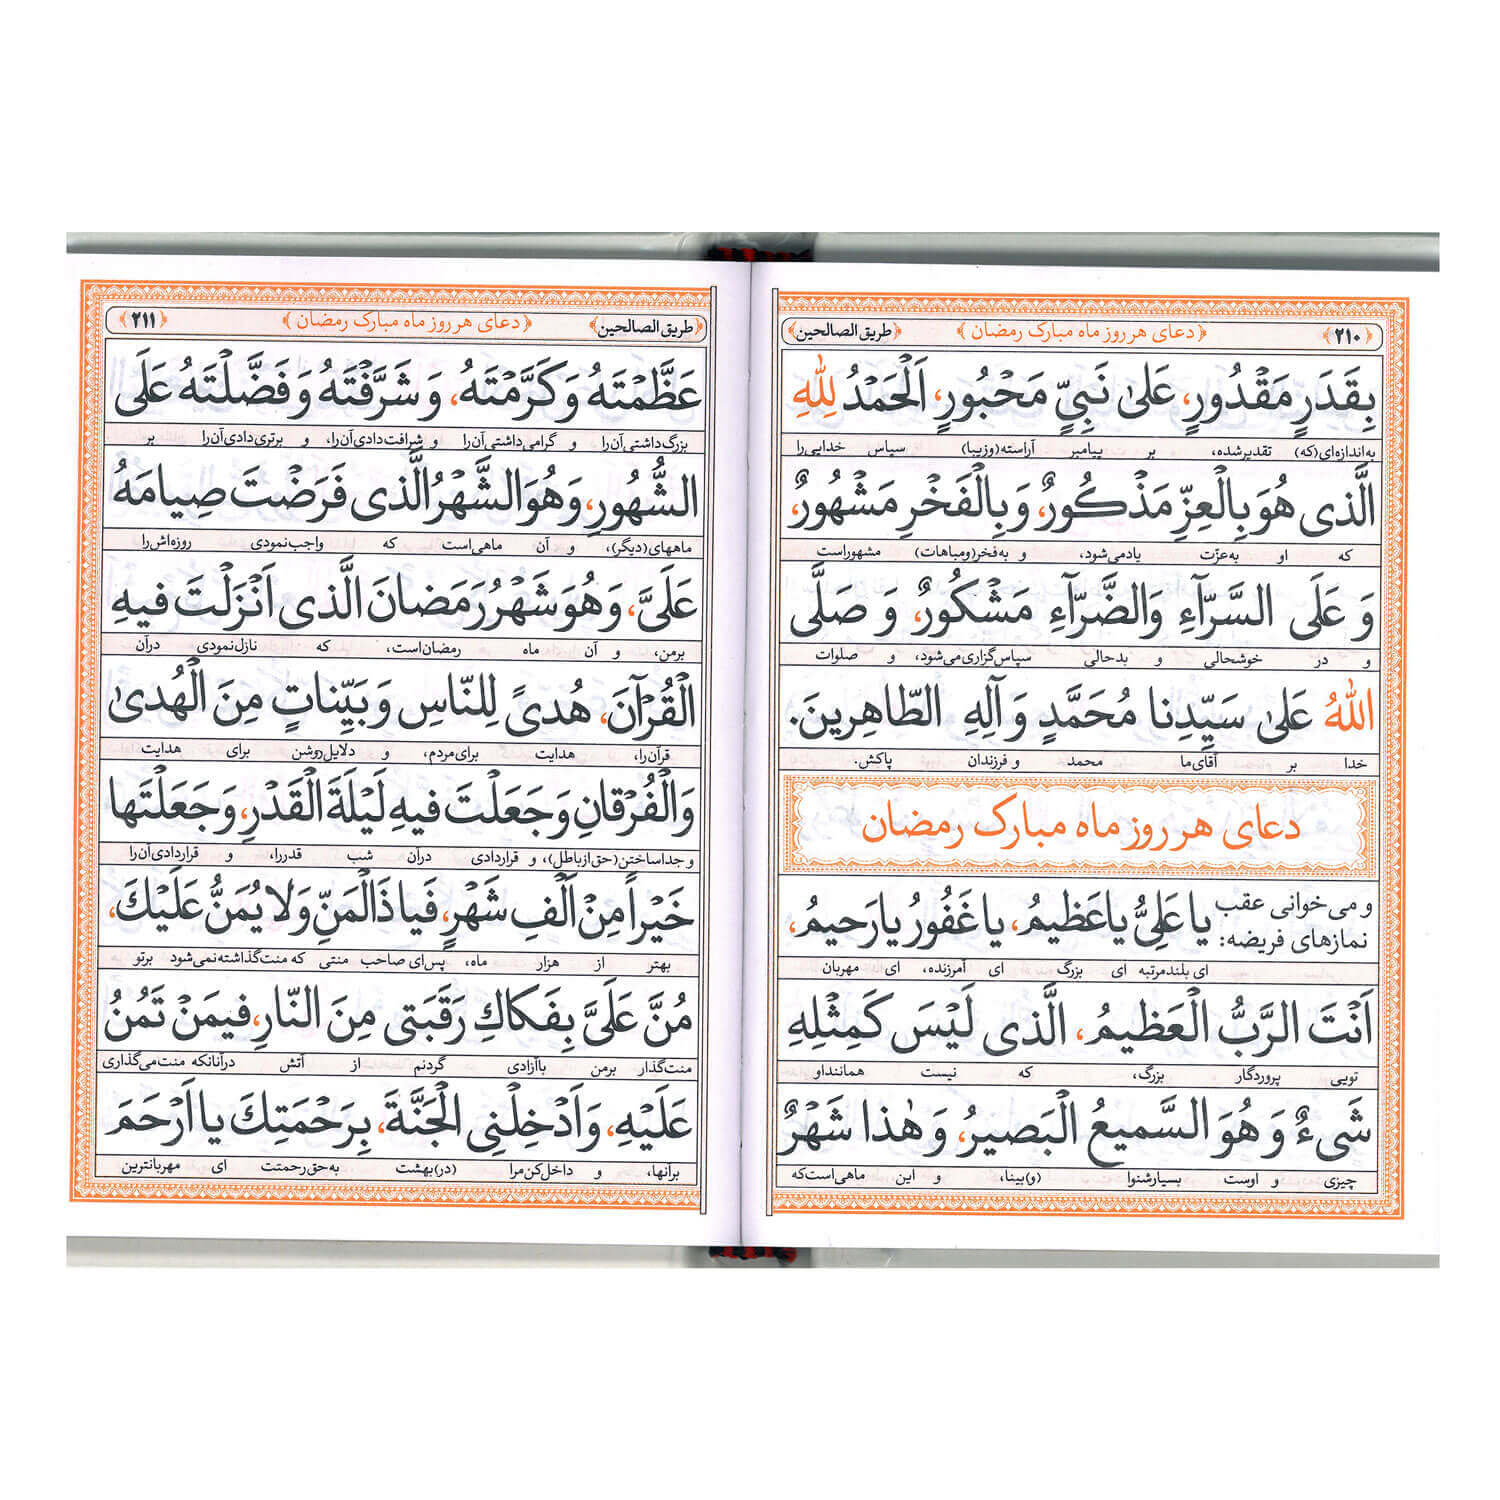 ﴿۲۱۰﴾ ﴿دعای هر روز ماه مبارک رمضان﴾ ﴿طریق الصالحین﴾
بِقَدَرٍ مَقْدُورٍ، عَلىٰ نَبِيٍّ مَحْبُورٍ، اَلْحَمْدُ لِلّٰهِ
به‌اندازه‌ای(که) تقدیرشده، بر پیامبر آراسته(وزیبا) سپاس خدایی‌را
الَّذى هُوَ بِالْعِزِّ مَذْكُورٌ، وَ بِالْفَخْرِ مَشْهُورٌ،
که او به‌عزّت یادمی‌شود، و به‌فخر(ومباهات) مشهوراست
وَ عَلَى السَّرَّآءِ وَالضَّرَّآءِ مَشْكُورٌ، وَ صَلَّى
و در خوشحالی و بدحالی سپاس‌گزاری‌می‌شود، و صلوات
اللهُ عَلىٰ سَيِّدِنا مُحَمَّدٍ وَ آلِهِ الطّاهِرينَ.
خدا بر آقای‌ما محمد و فرزندان پاکش.
دعای هر روز ماه مبارک رمضان
و می‌خوانی عقب نمازهای فریضه: يا عَلِيُّ يا عَظيمُ، يا غَفُورُ يا رَحيمُ،
ای بلندمرتبه ای بزرگ ای آمرزنده، ای مهربان
اَنْتَ الرَّبُّ الْعَظيمُ، الَّذى لَيْسَ كَمِثْلِهِ
تویی پروردگار بزرگ، که نیست هماننداو
شَىءٌ وَ هُوَ السَّميعُ الْبَصيرُ، وَ هٰذا شَهْرٌ
چیزی و اوست بسیارشنوا (و)بینا، و این ماهی‌است‌که
﴿طریق الصالحین﴾ ﴿دعای هر روز ماه مبارک رمضان﴾ ﴿۲۱۱﴾
عَظَّمْتَهُ وَ كَرَّمْتَهُ، وَ شَرَّفْتَهُ وَ فَضَّلْتَهُ عَلَى
بزرگ‌داشتی‌آن‌را و گرامی‌داشتی‌آن‌را و شرافت‌دادی‌آن‌را، و برتری‌دادی‌آن‌را بر
الشُّهُورِ، وَ هُوَ الشَّهْرُ الَّذى فَرَضْتَ صِيامَهُ
ماههای(دیگر)، و آن ماهی‌است که واجب‌نمودی روزه‌اش‌را
عَلَىَّ، وَ هُوَ شَهْرُ رَمَضانَ الَّذى اَنْزَلْتَ فيهِ
برمن، و آن ماه رمضان‌است، که نازل‌نمودی درآن
الْقُرْآنَ، هُدىً لِلنّاسِ وَ بَيِّناتٍ مِنَ الْهُدىٰ
قرآن‌را، هدایت برای‌مردم، و دلایل‌روشن برای هدایت
وَالْفُرْقانِ وَ جَعَلْتَ فيهِ لَيْلَةَ الْقَدْرِ، وَ جَعَلْتَها
و جداساختن(حق‌ازباطل)، و قراردادی درآن شب قدررا، و قراردادی‌آن‌را
خَيْراً مِنْ اَلْفِ شَهْرٍ، فَيا ذَا الْمَنِّ وَلا يُمَنُّ عَلَيْكَ،
بهتر از هزار ماه، پس‌ای صاحب منتی که منت‌گذاشته‌نمی‌شود برتو
مُنَّ عَلَىَّ بِفَكاكِ رَقَبَتى مِنَ النّارِ، فيمَنْ تَمُنُّ
منت‌گذار برمن باآزادی گردنم از آتش درآنانکه منت‌می‌گذاری
عَلَيْهِ، وَ اَدْخِلْنِى الْجَنَّةَ، بِرَحْمَتِكَ يا اَرْحَمَ
برآنها، و داخل‌کن‌مرا (در)بهشت به‌حق‌رحمتت ای مهربانترین